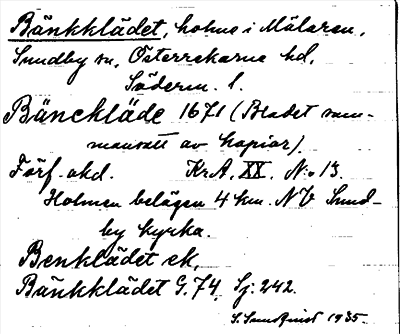 Bänkklädet, holme i Mälaren,
Sundby sn, Österrekarne hd,
Söderm. l.
Bänckläde 1671 (Bladet sam-
mansatt av kopior).
Förf. okd. KrA. XX. N:o 13.
Holmen belägen 4 km. NV Sund-
by kyrka.
Benklädet ek,
Bänkklädet G. 74, Sj: 242.
1935.